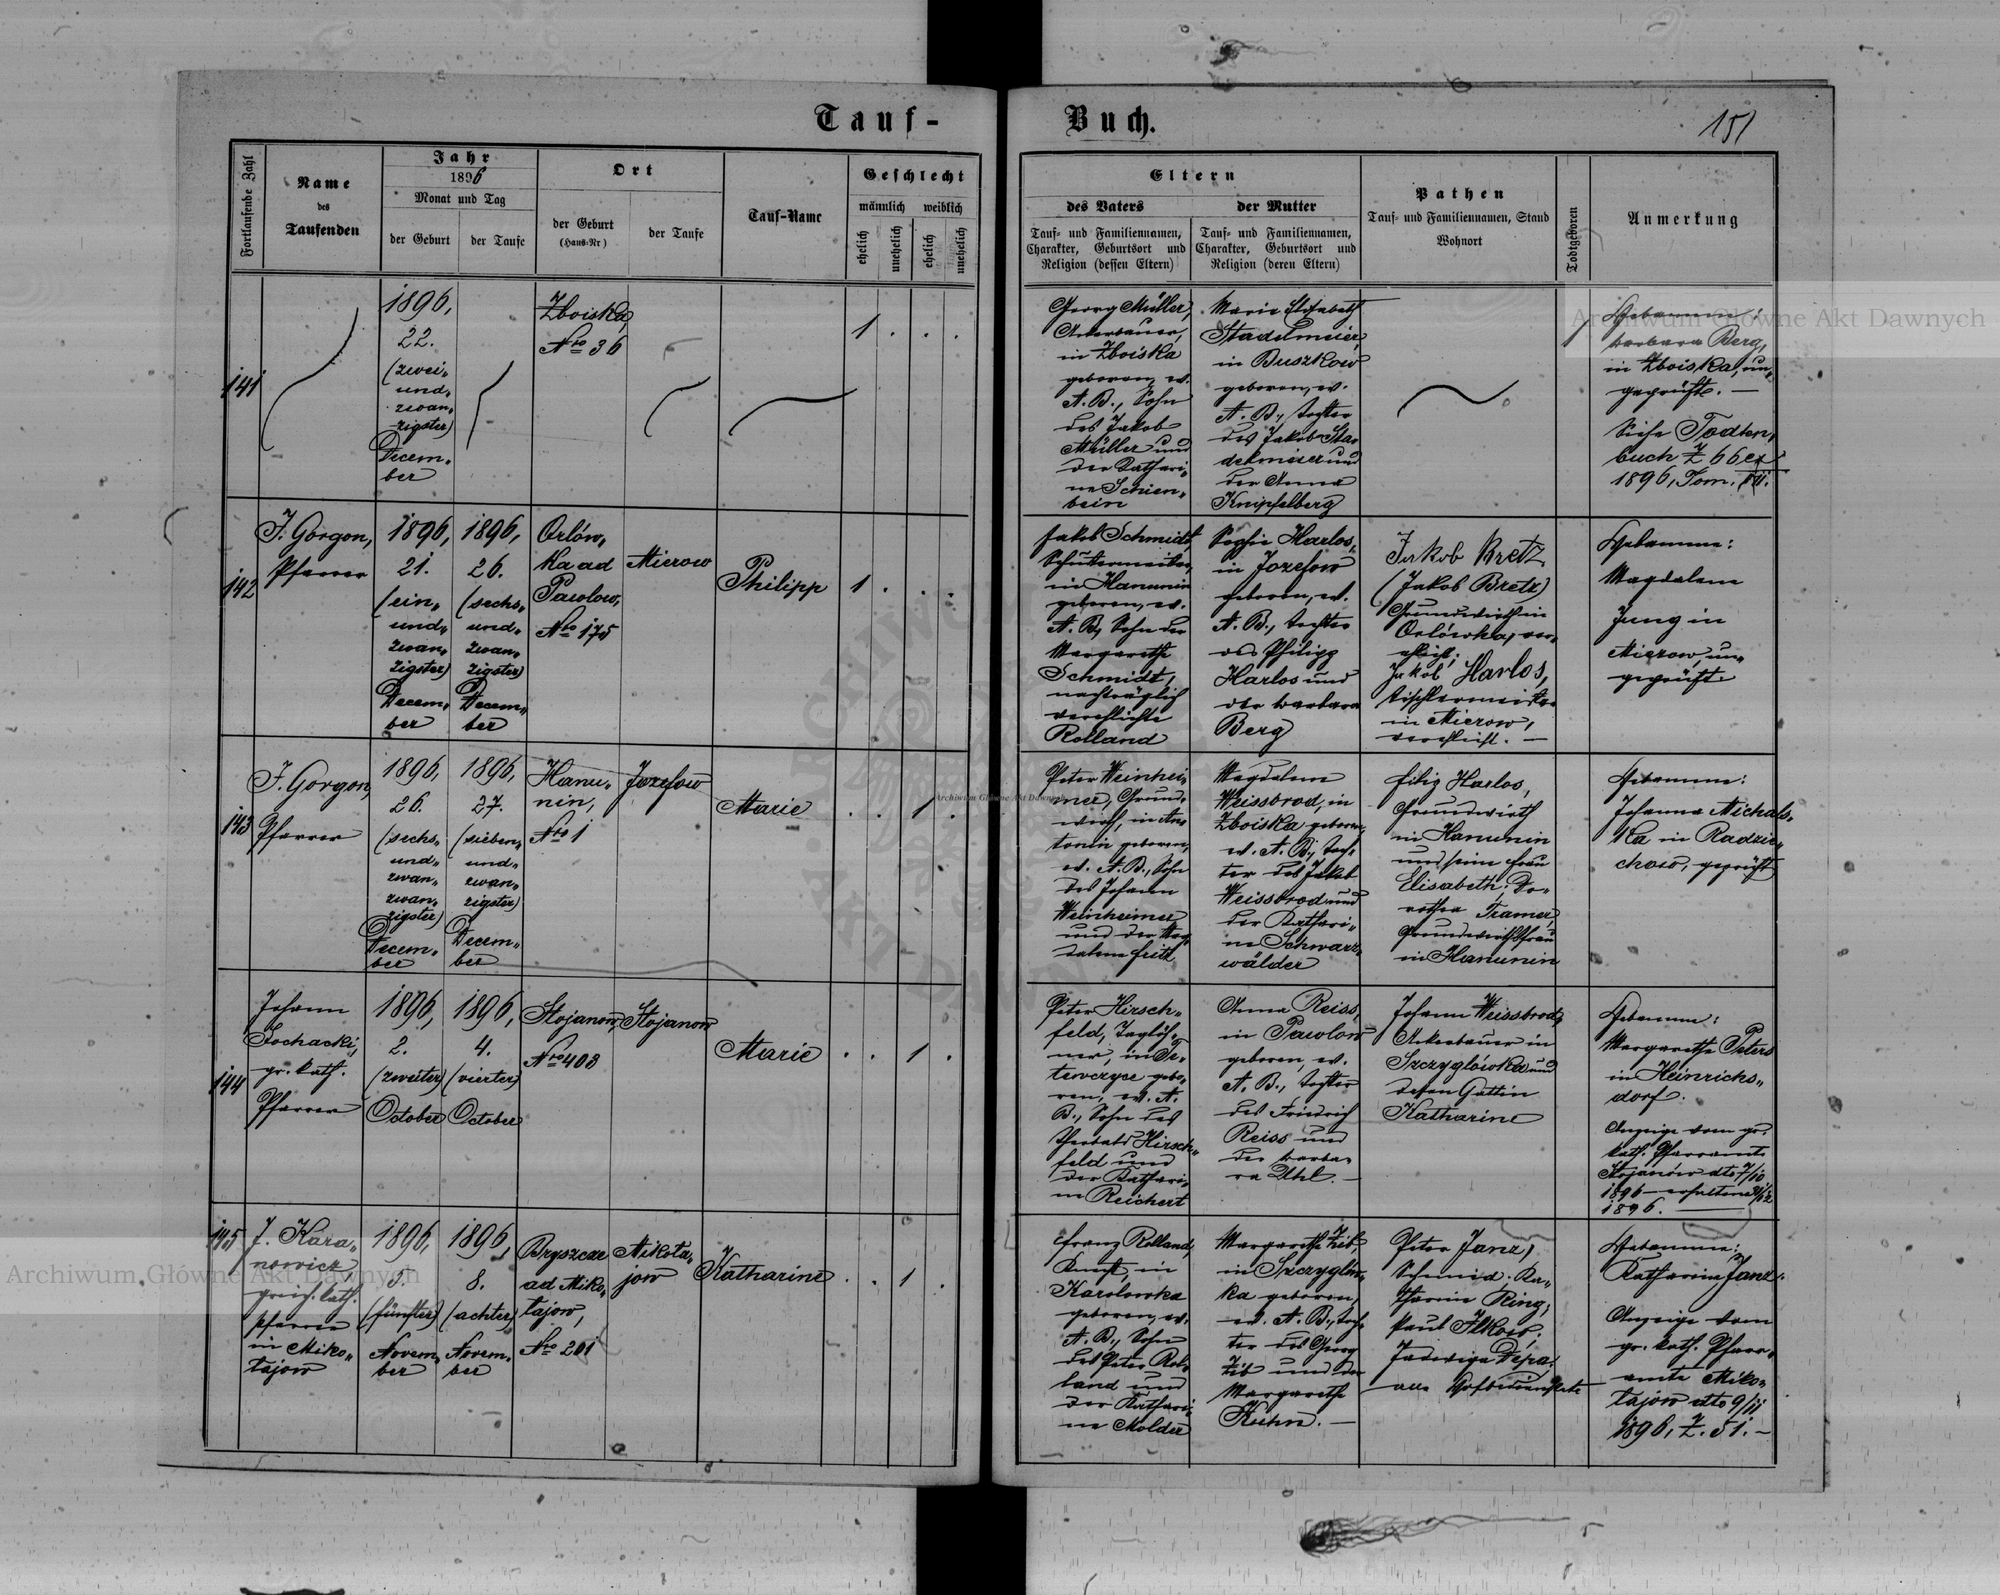 Tauf-
Buch.
151
Fortlaufende Zahl
Name
des
Taufenden
Jahr
1896
Monat und Tag
der Geburt
der Taufe
Ort
der Geburt
(Haus-Nr)
der Taufe
Tauf-Name
Geschlecht
männlich
weiblich
ehelich
unehelich
ehelich
unehelich
Eltern
des Vaters
Tauf- und Familiennamen,
Charakter, Geburtsort und
Religion (dessen Eltern)
der Mutter
Tauf- und Familiennamen,
Charakter, Geburtsort und
Religion (deren Eltern)
Pathen
Tauf- und Familiennamen, Stand
Wohnort
Todtgeboren
Anmerkung
141
1896,
22.
(zwei„
und„
zwan„
zigster)
Decem„
ber
Zboiska,
Nro 36
1 . . .
Georg Müller,
Ackerbauer,
in Zboiska
geboren, ev.
A. B., Sohn
des Jakob
Müller und
der Kathari„
ne Schien„
bein
Marie Elisabeth
Stadelmeier,
in Buszkow
geboren, ev.
A. B., Tochter
des Jakob Sta„
delmeier und
der Anna
Knipfelberg
1
Hebamme:
Barbara Berg,
in Zboiska, un„
geprüft. —
Siehe Todten„
buch Z 66 ex
1896, Tom. III.
142
J. Gorgon,
Pfarrer
1896,
21.
(ein„
und„
zwan„
zigster)
Decem„
ber
1896,
26.
(sechs„
und„
zwan„
zigster)
Decem„
ber
Orlów„
ka ad
Pawlow,
Nro 175
Mierow
Philipp
1 . . .
Jakob Schmidt
Schustermeister,
in Hanunin
geboren, ev.
A. B., Sohn der
Margarethe
Schmidt,
nachträglich
verehlichte
Rolland
Sophie Harlos,
in Jozefow
geboren, ev.
A. B., Tochter
des Philipp
Harlos und
der Barbara
Berg
Jakob Bretz
(Jakob Bretz)
Grundwirth in
Orlówka, ver„
ehlicht;
Jakob Harlos,
Tischlermeister
in Mierow,
verehlicht. —
Hebamme:
Magdalene
Jung in
Mierow, un„
geprüft.
143
J. Gorgon,
Pfarrer
1896,
26.
(sechs„
und„
zwan„
zigster)
Decem„
ber
1896,
27.
(sieben„
und„
zwan„
zigster)
Decem„
ber
Hanu„
nin,
Nro 1
Jozefow
Marie
. . 1 .
Peter Weinhei„
mer, Grund„
wirth, in An„
tonin geboren,
ev. A. B., Sohn
des Johann
Weinheimer
und der Mag„
dalena Fritz
Magdalene
Weissbrod, in
Zboiska geboren,
ev. A. B., Toch„
ter des Jakob
Weissbrod und
der Kathari„
ne Schwarz„
wälder
Filip Harlos,
Grundwirth
in Hanunin
und seine Frau
Elisabeth; Do„
rothea Tramer,
Grundwirthsfrau
in Hanunin
Hebamme:
Johanna Michals„
ka in Radzie„
chow, geprüft
144
Johann
Sochacki,
gr. kath.
Pfarrer
1896,
2.
(zweiter)
October
1896,
4.
(vierter)
October
Stojanow,
Nro 403
Stojanow
Marie
. . 1 .
Peter Hirsch„
feld, Taglöh„
ner, in Te„
tewczyce gebo„
ren, ev. A.
B., Sohn des
Hirsch„
feld und
der Kathari„
ne Reichert
Anna Reiss,
in Pawlow
geboren, ev.
A. B., Tochter
des Friedrich
Reiss und
der Barba„
ra Uhl. —
Johann Weissbrod,
Ackerbauer in
Szczyglówka und
dessen Gattin
Katharine
Hebamme:
Margarethe Peters
in Heinrichs„
dorf.
Anzeige vom gr.
kath. Pfarramte
Stojanów dto 7/10
1896 erhalten 31/12
1896. —
145
J. Kara„
nowicz
griech. kath.
Pfarrer
in Miko„
łajow
1896,
5.
(fünfter)
Novem„
ber
1896,
8.
(achter)
Novem„
ber
Bryszcze
ad Miko„
łajow,
Nro 201
Mikoła„
jow
Katharine
. . 1 .
Franz Rolland
Knecht, in
Karolowka
geboren, ev.
A. B., Sohn
des Peter Rol„
land und
der Kathari„
ne Molder
Margarethe Zib,
in Szczyglów„
ka geboren,
ev. A. B., Toch„
ter des Georg
Zib und der
Margarethe
Kuhn. —
Peter Janz,
Schmid. Ka„
tharine Ring;
Paul Ilkow;
Jadwiga Depa.
alle Hofbedienstete
Hebamme:
Katharina Janz.
Anzeige vom
gr. kath. Pfarr„
amte Miko„
łajow dto 9/11
1896, Z. 51. —
Archiwum Główne Akt Dawnych
Archiwum Główne Akt Dawnych
Archiwum Główne Akt Dawnych